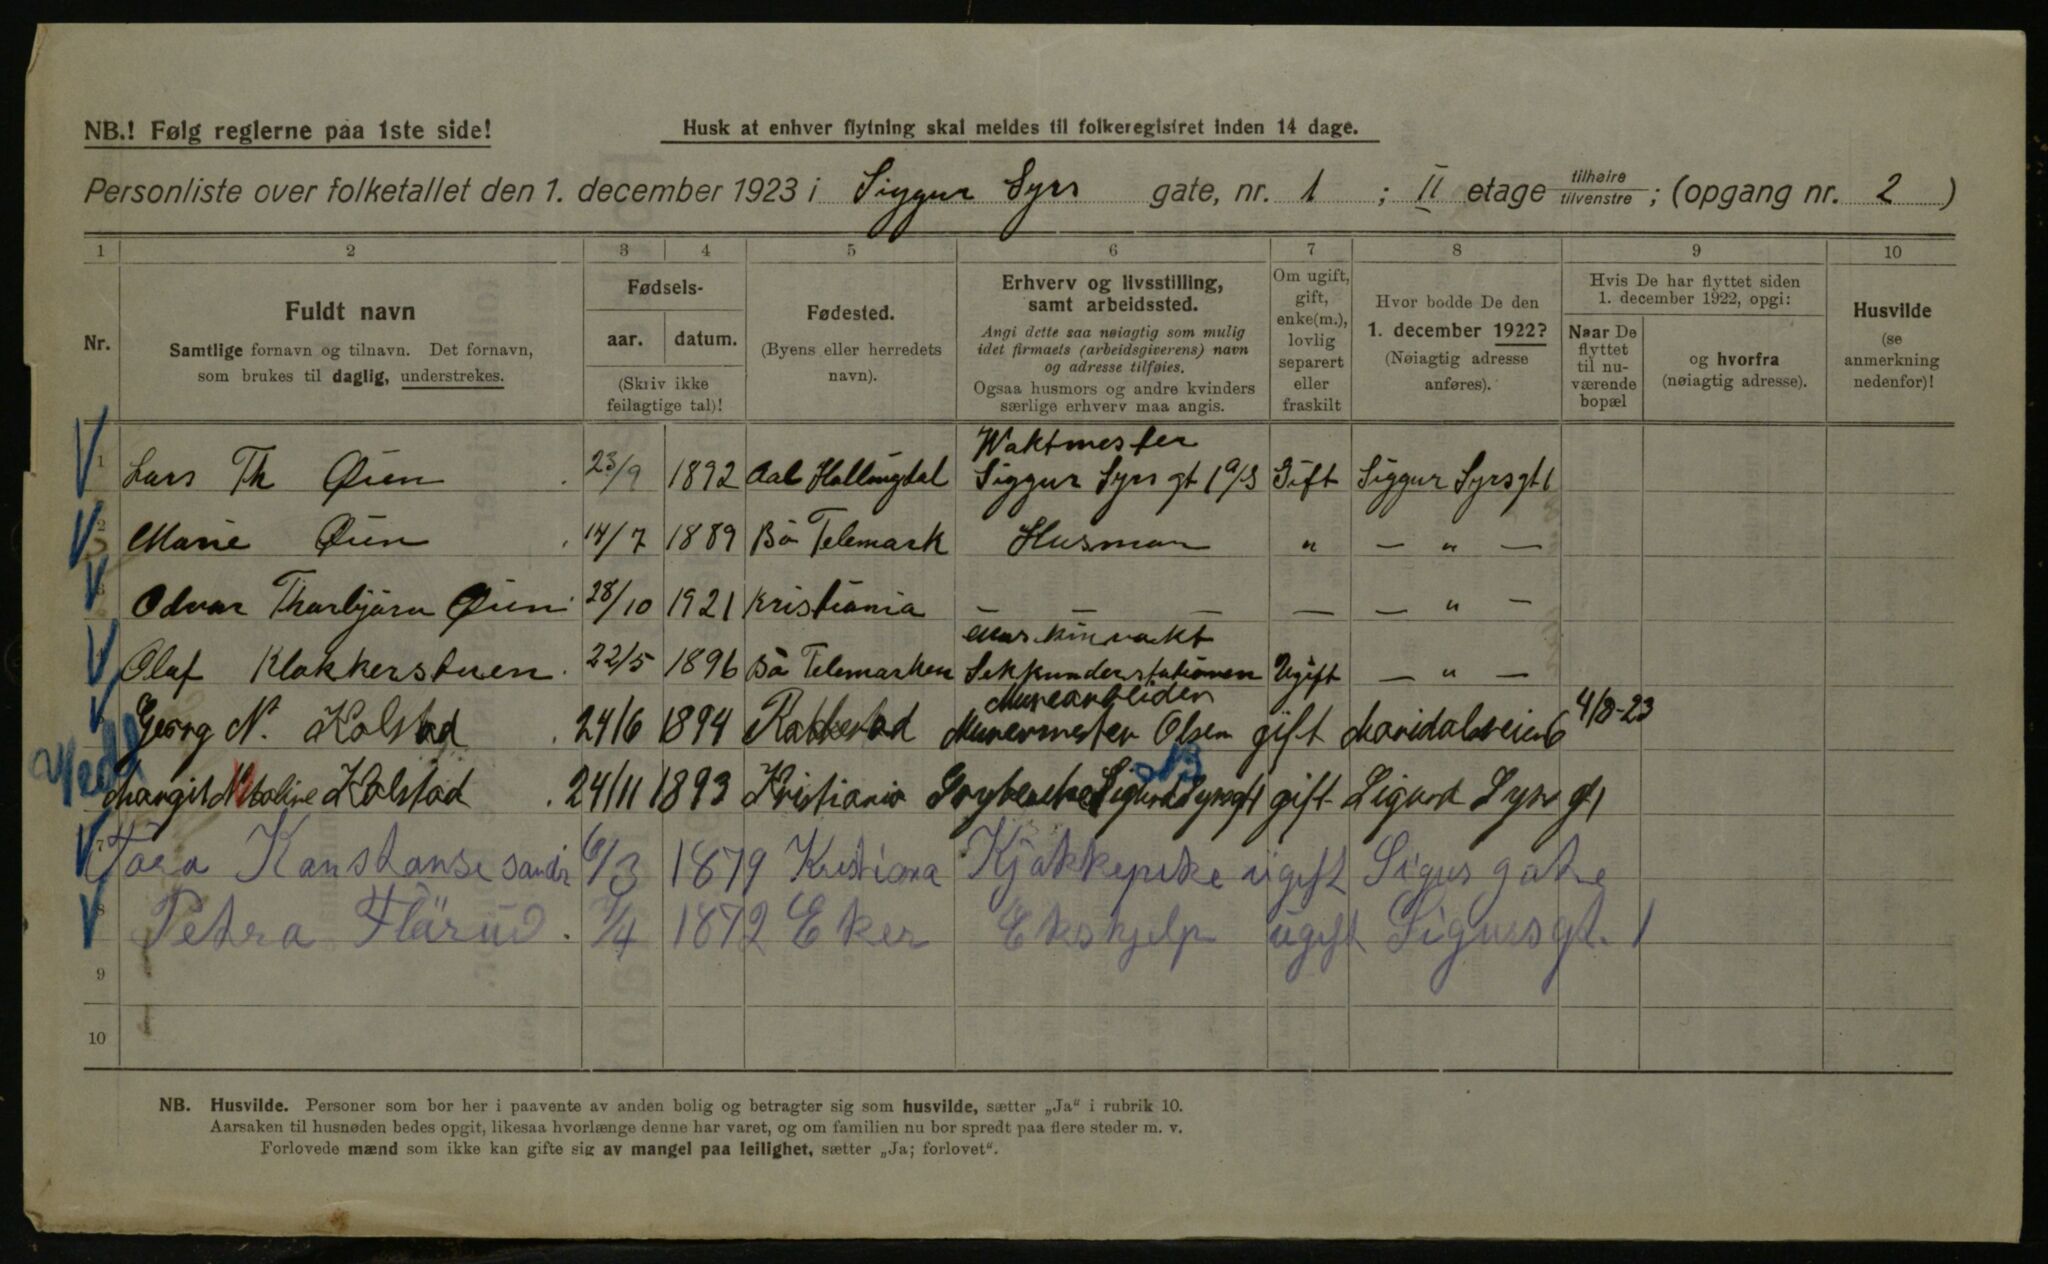 NB.! Følg reglerne paa 1ste side!
Husk at enhver flytning skal meldes til folkeregistret inden 14 dage.
Personliste over folketallet den 1. december 1923 i Siggur Syrs gate, nr. 1 ; II etage tilhøire tilvenstre ; (opgang nr. 2 )
1 2 3 4 5 6 7 8 9 10
Nr.
Fuldt navn
Samtlige fornavn og tilnavn. Det fornavn,
som brukes til daglig, understrekes.
Fødsels-
aar. datum.
(Skriv ikke
feilagtige tal)!
Fødested.
(Byens eller herredets
navn).
Erhverv og livsstilling,
samt arbeidssted.
Angi dette saa nøiagtig som mulig
idet firmaets (arbeidsgiverens) navn
og adresse tilføies.
Ogsaa husmors og andre kvinders
særlige erhverv maa angis.
Om ugift,
gift,
enke(m.),
lovlig
separert
eller
fraskilt
Hvor bodde De den
1. december 1922?
(Nøiagtig adresse
anføres).
Hvis De har flyttet siden
1. december 1922, opgi:
Naar De
flyttet
til nu-
værende
bopæl
og hvorfra
(nøiagtig adresse).
Husvilde
(se
anmerkning
nedenfor)!
Waktmester
1 Lars Th Øien 23/9 1892 Aal Hallingdal Siggur Syrs gt 1 a/s Gift Siggur Syrsgt 1
2 Marie Øien 14/7 1889 Bö Telemark Husmor " — " —
Odvar Thorbjørn Øien 28/10 1921 Kristiania — — — — — " —
Maskinvakt
Olaf Klakkerstuen 22/5 1896 Bö Telemarken Sekkunderstationen Ugift — " —
Murearbeider
Georg N. Kolstad 24/6 1894 Rakkestad Murermester Olsen gift Maridalsveien 6 4/8-23
Margit Nataline Kolstad 24/11 1893 Kristiania Sigurd Syrsgt 1 gift Sigurd Syrs gt 1
7 Tora Konstanse 6/3 1879 Kristiana Kjøkkenpike ugift Sigurs gate
8 Petra Flärud 7/4 1872 Eker Ekshjelp ugift Sigursgt. 1
9
10
NB. Husvilde. Personer som bor her i paavente av anden bolig og betragter sig som husvilde, sætter „Ja“ i rubrik 10.
Aarsaken til husnøden bedes opgit, likesaa hvorlænge denne har varet, og om familien nu bor spredt paa flere steder m. v.
Forlovede mænd som ikke kan gifte sig av mangel paa leilighet, sætter „Ja; forlovet“.